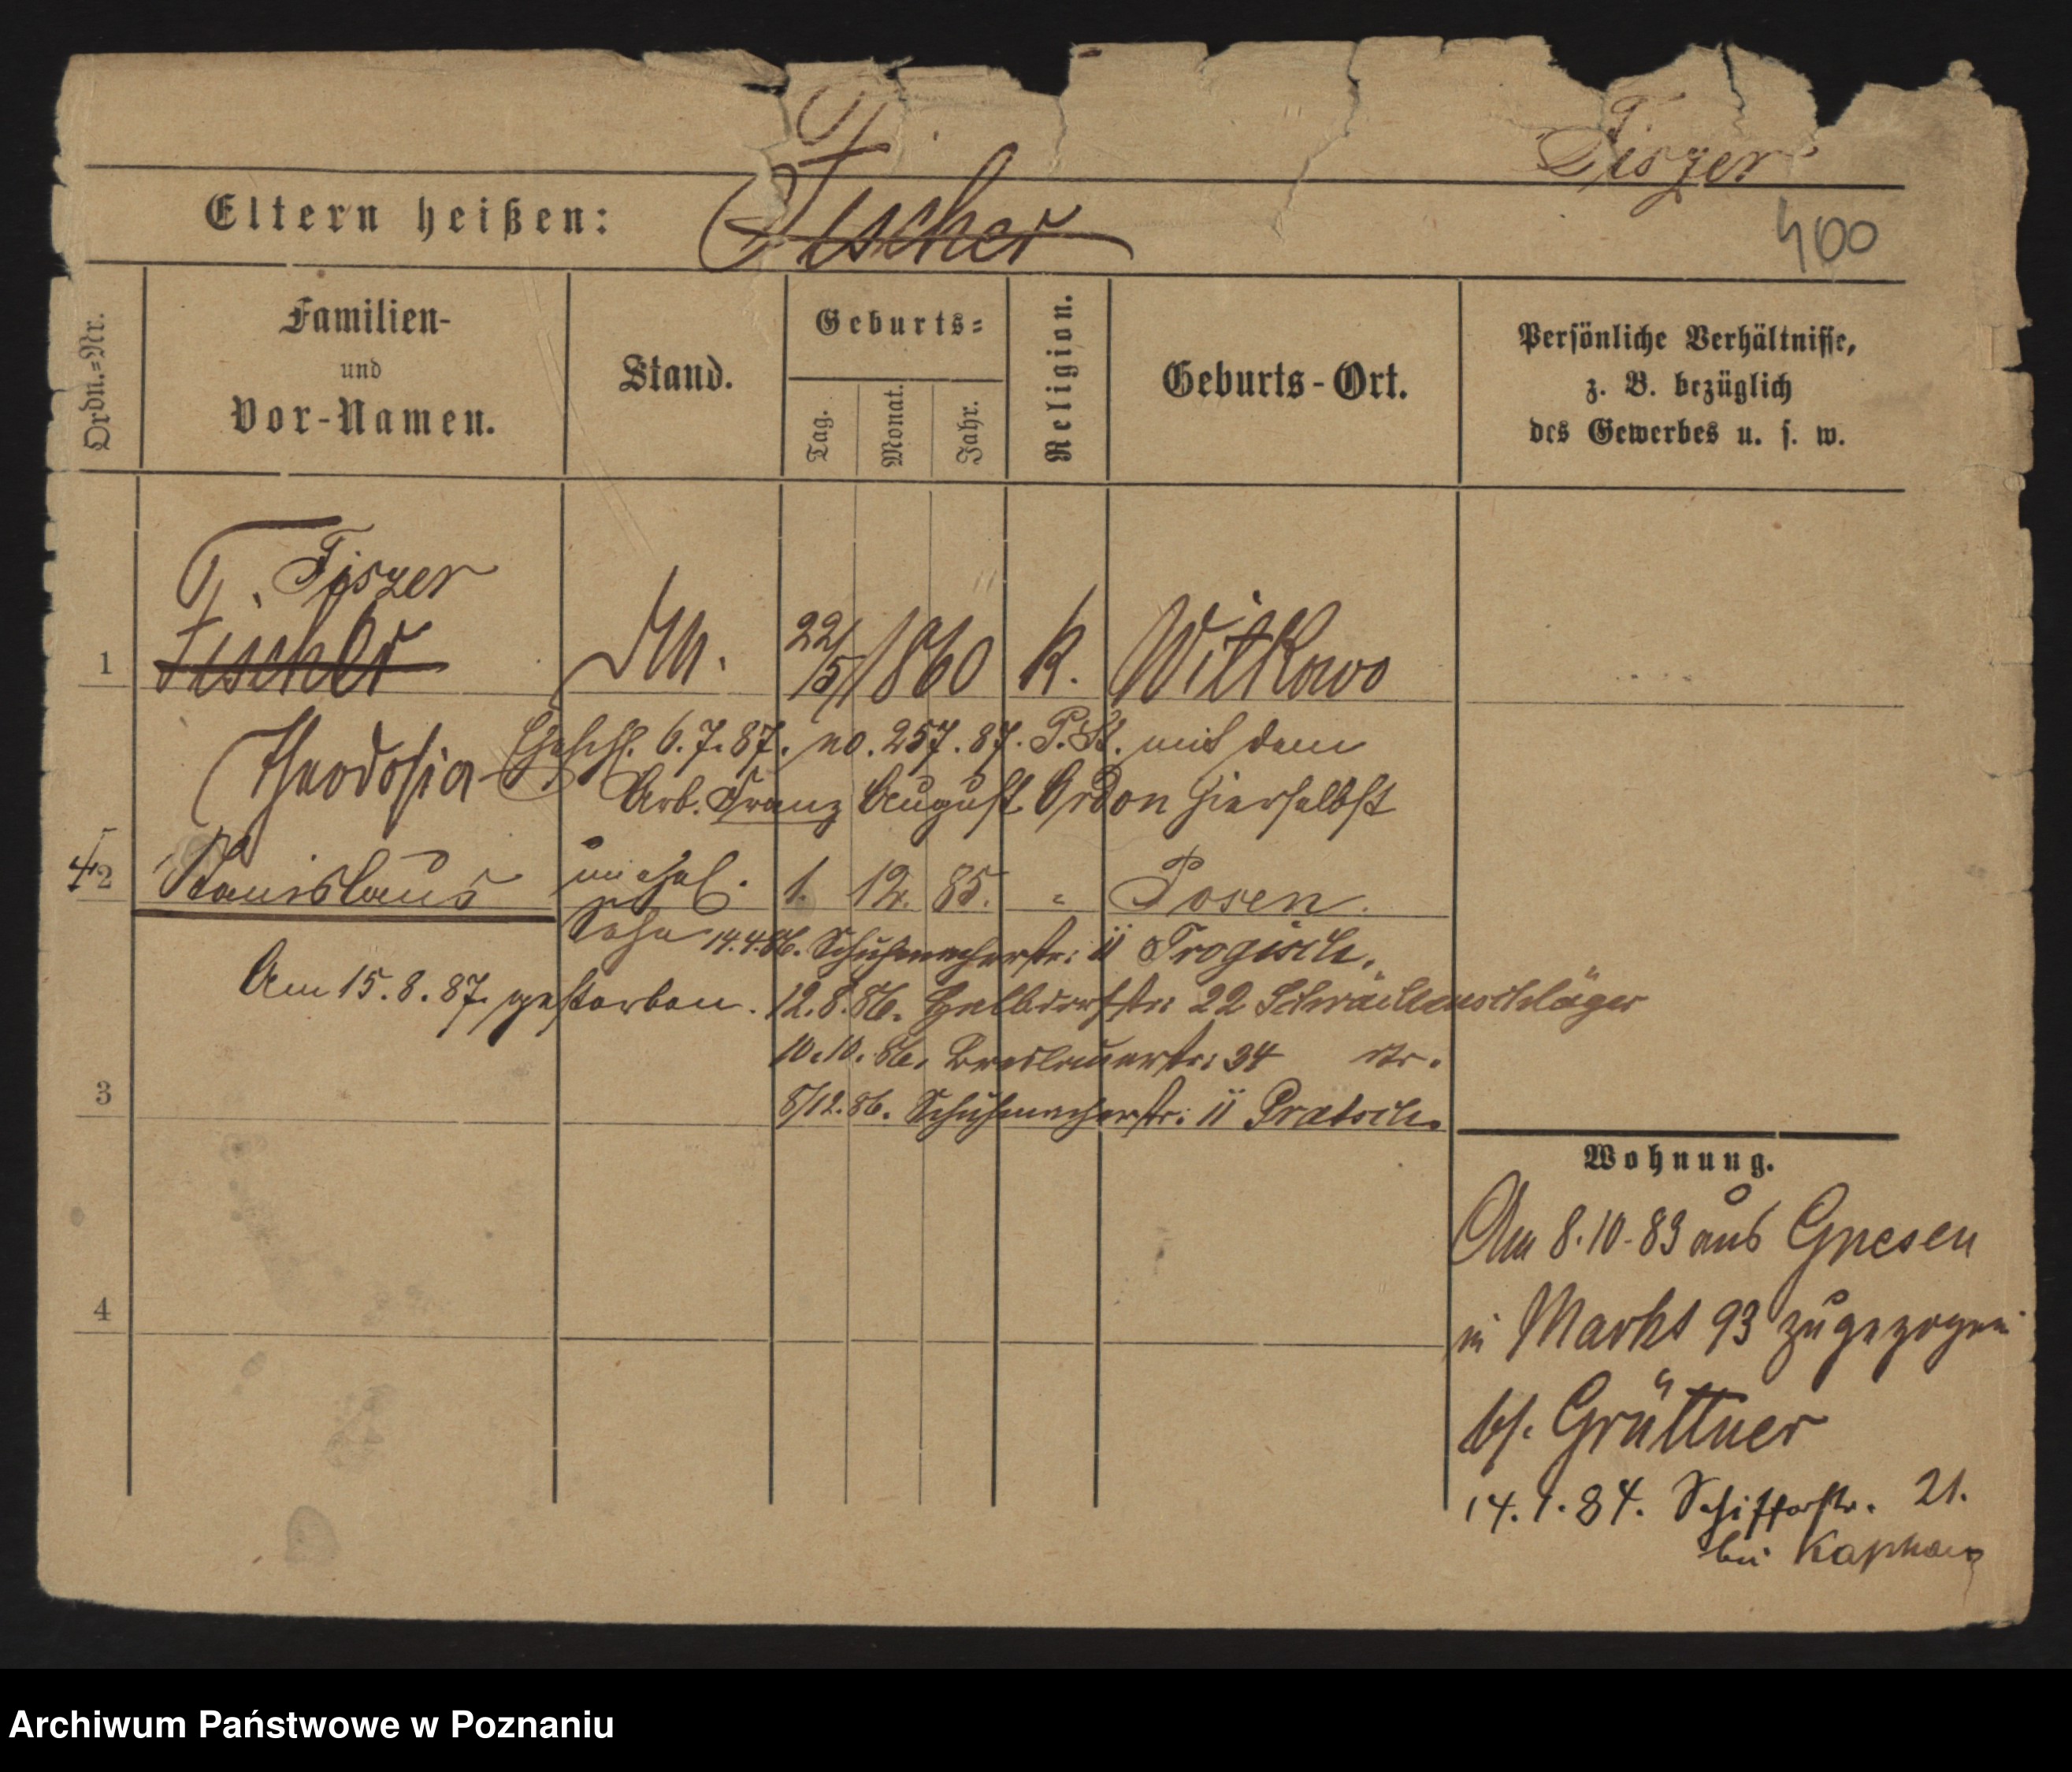 Fiszer
Eltern heißen: Fischer
400
Ordn.=Nr.
Familien-
und
Vor-Namen.
Stand.
Geburts=
Tag.
Monat.
Jahr.
Religion.
Geburts-Ort.
Persönliche Verhältnisse,
z. B. bezüglich
des Gewerbes u. s. w.
Fiszer
1 Fischer 22/5 1860 k. Witkowo
Theodosia Eheschl. 6.7.87. no. 257.87. P.St. mit dem
Arb. Franz August Ordon hierselbst
2 Stanislaus unehel. 1. 12. 85. " Posen.
Sohn 14.4.86. Schuhmacherstr: 11 Trogisch.
Am 15.8.87. gestorben. 12.8.86. Halbdorfstr: 22
10.10.86. Breslauerstr: 34
3 8/12.86. Schuhmacherstr: 11 Pratsch.
Wohnung.
Am 8.10.83 aus Gnesen
4 in Markt 93 zugezogen
bf. Grüttner
14.1.84. Schifferstr. 21.
bei
Archiwum Państwowe w Poznaniu